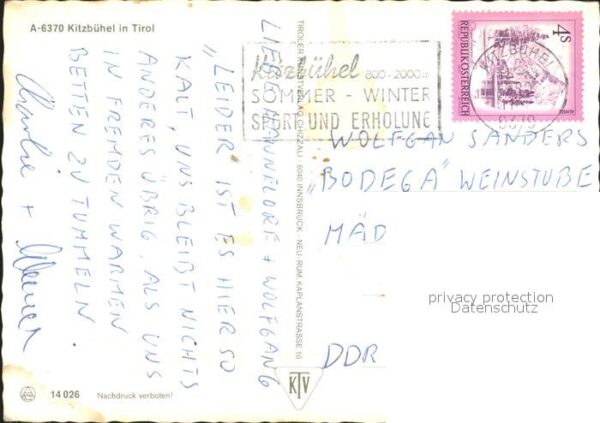 A-6370 Kitzbühel in Tirol
LIEBE HANNELORE + WOLFGANG
„LEIDER IST ES HIER SO
KALT, UNS BLEIBT NICHTS
ANDERES ÜBRIG, ALS UNS
IN FREMDEN WARMEN
BETTEN ZU TUMMELN
+
14 026 Nachdruck verboten!
TIROLER KUNSTVERLAG CHIZZALI · 6040 INNSBRUCK - NEU-RUM, KAPLANSTRASSE 10
KTV
Kitzbühel 800-2000 m
SOMMER - WINTER
SPORT UND ERHOLUNG
KITZBÜHEL
6370
4S
REPUBLIK ÖSTERREICH
WOLFGAN SANDERS
„BODEGA" WEINSTUBE
MÄD
DDR
privacy protection
Datenschutz